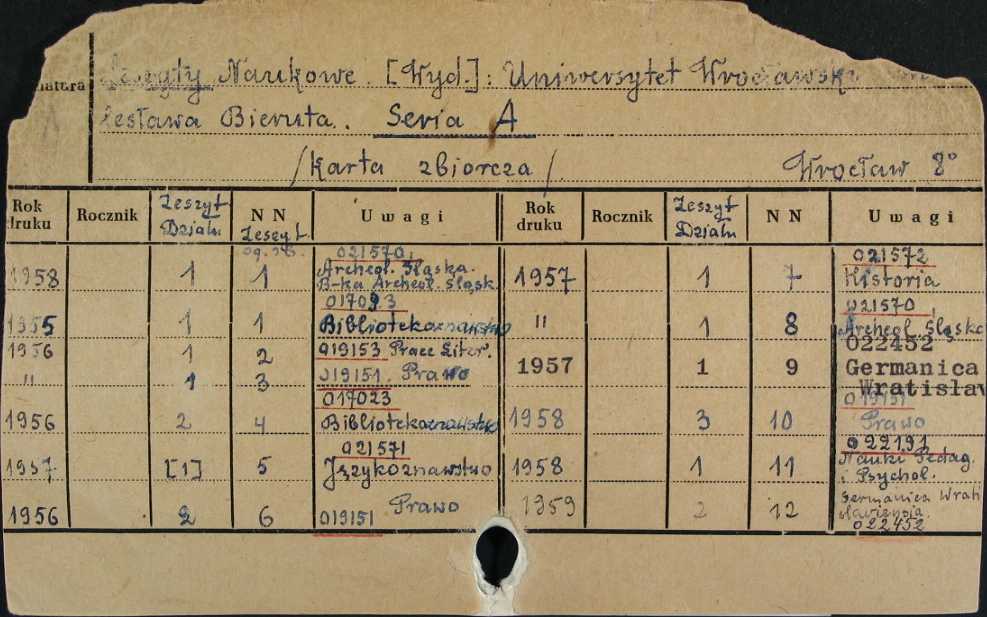 Zeszyty Naukowe. [Wyd.]: Uniwersytet Wrocławski
natura
lesława Bieruta. Seria A
/karta zbiorcza/ Wrocław 8°
Rok druku Rocznik Zeszyt Działu NN Zeszyt. Uwagi Rok druku Rocznik Zeszyt Działu NN Uwagi
og. zb.
1958 1 1 021570, Archeol. Śląska. B-ka Archeol. Śląsk. 1957 1 7 021572 Historia
1955 1 1 017093 Bibliotekoznawstwo " 1 8 021570, Archeol. Śląska
1956 1 2 019153 Prace Liter. 1957 1 9 022452 Germanica Wratislav
" 1 3 019151. Prawo
1956 2 4 017023 Bibliotekoznawstwo 1958 3 10 019151 Prawo
1957 [1] 5 021571 Językoznawstwo 1958 1 11 022191 Nauki Pedag. i Psychol.
1956 2 6 Prawo 019151 1959 2 12 Germanica Wratislaviensia. 022452